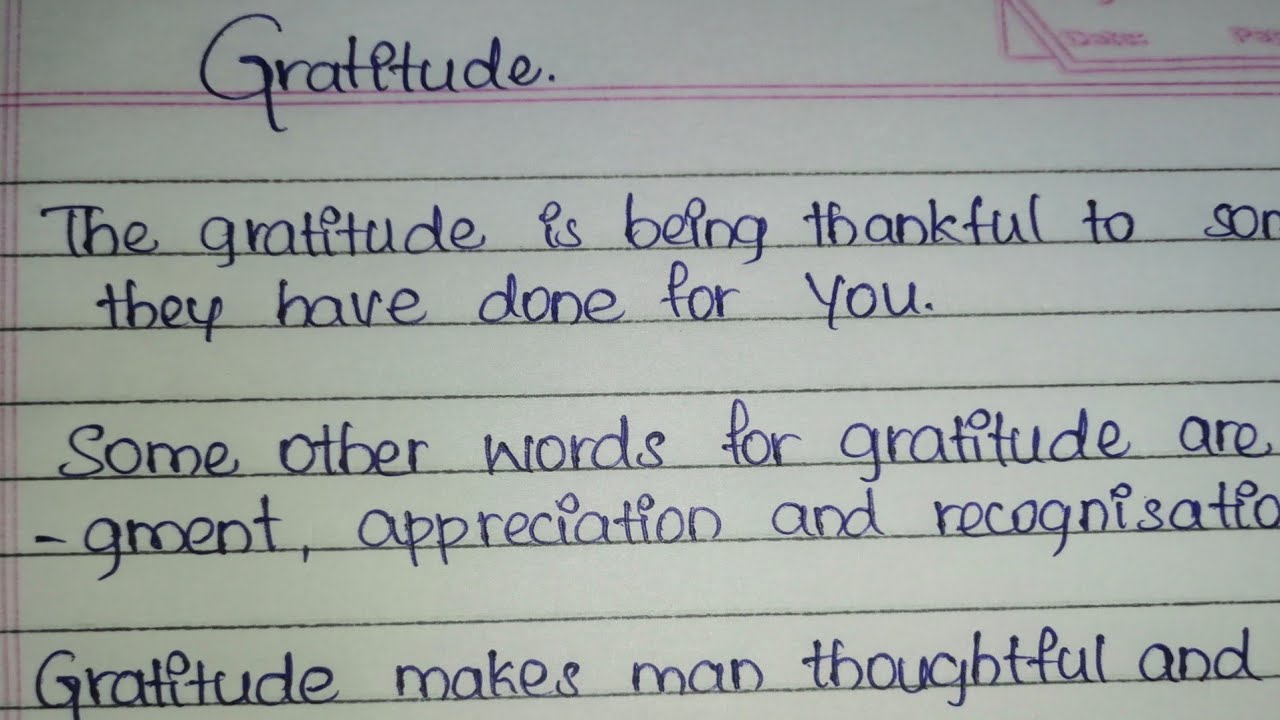 Date:
Gratitude.
The gratitude is being thankful to
they have done for you.
Some other words for gratitude are
-gment, appreciation and recognisatio
Gratitude makes man thoughtful and